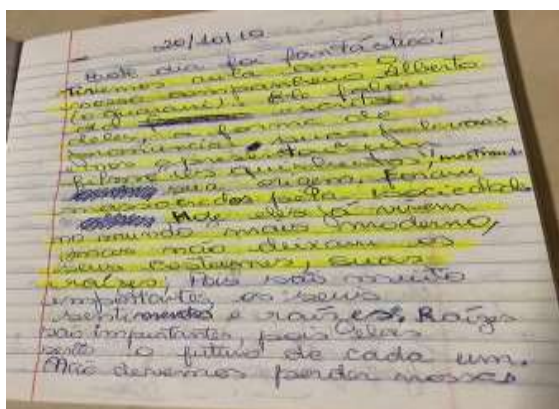 20/10/10
Hoje dia foi fantástico!
Tivemos aula com
nosso companheiro Alberto
(o guarani). Ele falou
da escrita
deles, a forma de
pronúncia suas palavras
e nos apresentou um
filme dos quilombos, mostrando
sua origem. Foram
pela sociedade
Hoje eles já vivem
no mundo mais moderno,
mas não deixam os
seus costumes, suas
raízes, Pois são muito
importantes os seus
sentimentos e raízes. Raízes
são importantes, pois elas
serão o futuro de cada um.
Não devemos perder nossas